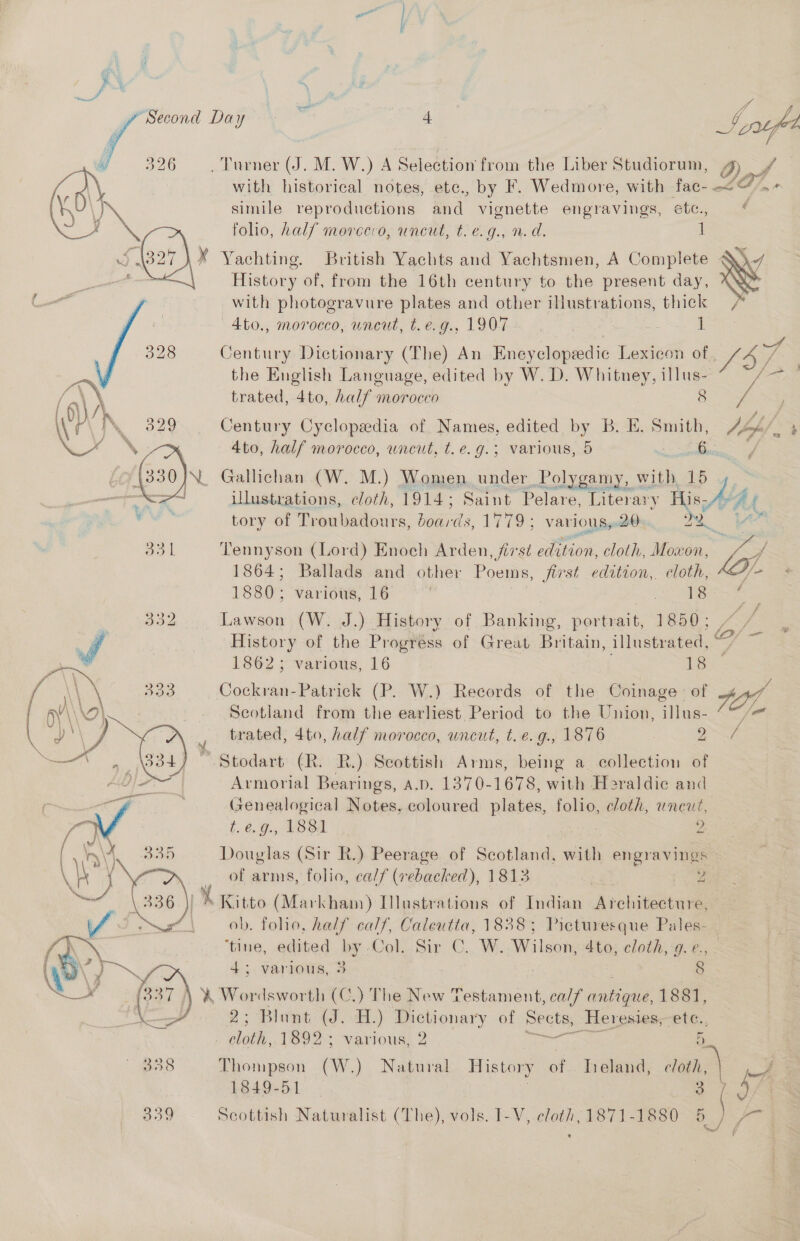 Second Day 4
326 Turner (J. M. W.) A Selection from the Liber Studiorum,
with historical notes, etc., by F. Wedmore, with fac-
simile reproductions and vignette engravings, etc.,
folio, half morocco, uncut, t. e. g., n. d. 1
327 Yachting. British Yachts and Yachtsmen, A Complete
History of, from the 16th century to the present day,
with photogravure plates and other illustrations, thick
4to., morocco, uncut, t. e. g., 1907 1
328 Century Dictionary (The) An Encyclopædic Lexicon of
the English Language, edited by W. D. Whitney, illus-
trated, 4to, half morocco 8
329 Century Cyclopædia of Names, edited by B. E. Smith,
4to, half morocco, uncut, t. e. g.; various, 5 6
330 Gallichan (W. M.) Women under Polygamy, with 15
illustrations, cloth, 1914; Saint Pelare, Literary His-
tory of Troubadours, boards, 1779; various, 20 22
331 Tennyson (Lord) Enoch Arden, first edition, cloth, Moxon,
1864; Ballads and other Poems, first edition, cloth,
1880; various, 16 18
332 Lawson (W. J.) History of Banking, portrait, 1850;
History of the Progress of Great Britain, illustrated,
1862; various, 16 18
333 Cockran-Patrick (P. W.) Records of the Coinage of
Scotland from the earliest Period to the Union, illus-
trated, 4to, half morocco, uncut, t. e. g., 1876 2
334 Stodart (R. R.) Scottish Arms, being a collection of
Armorial Bearings, A.D. 1370-1678, with Heraldic and
Genealogical Notes, coloured plates, folio, cloth, uncut,
t. e. g., 1881 2
335 Douglas (Sir R.) Peerage of Scotland, with engravings
of arms, folio, calf (rebacked), 1813 2
336 Kitto (Markham) Illustrations of Indian Architecture,
ob. folio, half calf, Calcutta, 1838; Picturesque Pales-
tine, edited by Col. Sir C. W. Wilson, 4to, cloth, g. e.,
4; various, 3 8
337 Wordsworth (C.) The New Testament, calf antique, 1881,
2; Blunt (J. H.) Dictionary of Sects, Heresies, etc.,
cloth, 1892; various, 2 5
338 Thompson (W.) Natural History of Ireland, cloth,
1849-51 3
339 Scottish Naturalist (The), vols. I-V, cloth, 1871-1880 5